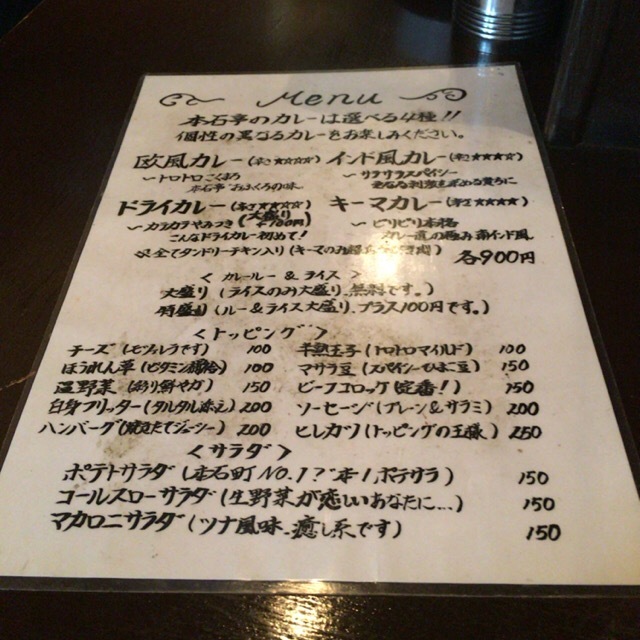 Menu
本石亭のカレーは選べる4種!!
個性の異なるカレーをお楽しみください。
欧風カレー(辛さ★☆☆☆☆) インド風カレー(辛さ★★★★☆)
〜トロトロこくまろ 〜サラサラスパイシー
本石亭おふくろの味
ドライカレー(辛さ キーマカレー(辛さ★★★★☆)
(大盛り+100円)
〜カラカラやみつき 〜ピリピリ本格
こんなドライカレー初めて! カレー直の極み南インド風
全てタンドリーチキン入り(キーマのみ 各900円
<カレールー&ライス>
大盛り(ライスのみ大盛り、無料です。)
特盛り(ルー&ライス大盛り、プラス100円です。)
<トッピング>
チーズ(ピザ用らうです) 100 半熟玉子(トロトロマイルド) 100
ほうれん草(ビタミン 100 マサラ豆(スパイシーひよこ豆) 150
温野菜(彩り鮮やか) 150 ビーフコロッケ(定番!) 150
白身フリッター(タルタル添え) 200 ソーセージ(プレーン&サラミ) 200
ハンバーグ(焼きたてジューシー) 200 ヒレカツ(トッピングの王様) 250
<サラダ>
ポテトサラダ(本石町NO.1?ポテサラ) 150
コールスローサラダ(生野菜が恋しいあなたに…) 150
マカロニサラダ(ツナ風味、癒し系です) 150